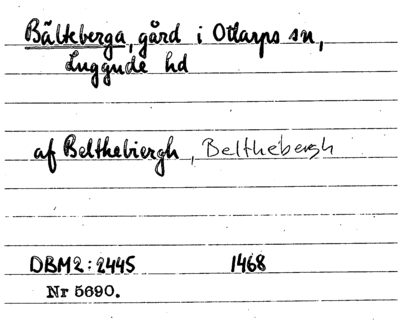 Bälteberga, gård i Ottarps sn,
Luggude hd
af Belthebiergh, Belthebergh
DBM2:2445 1468
Nr 5690.